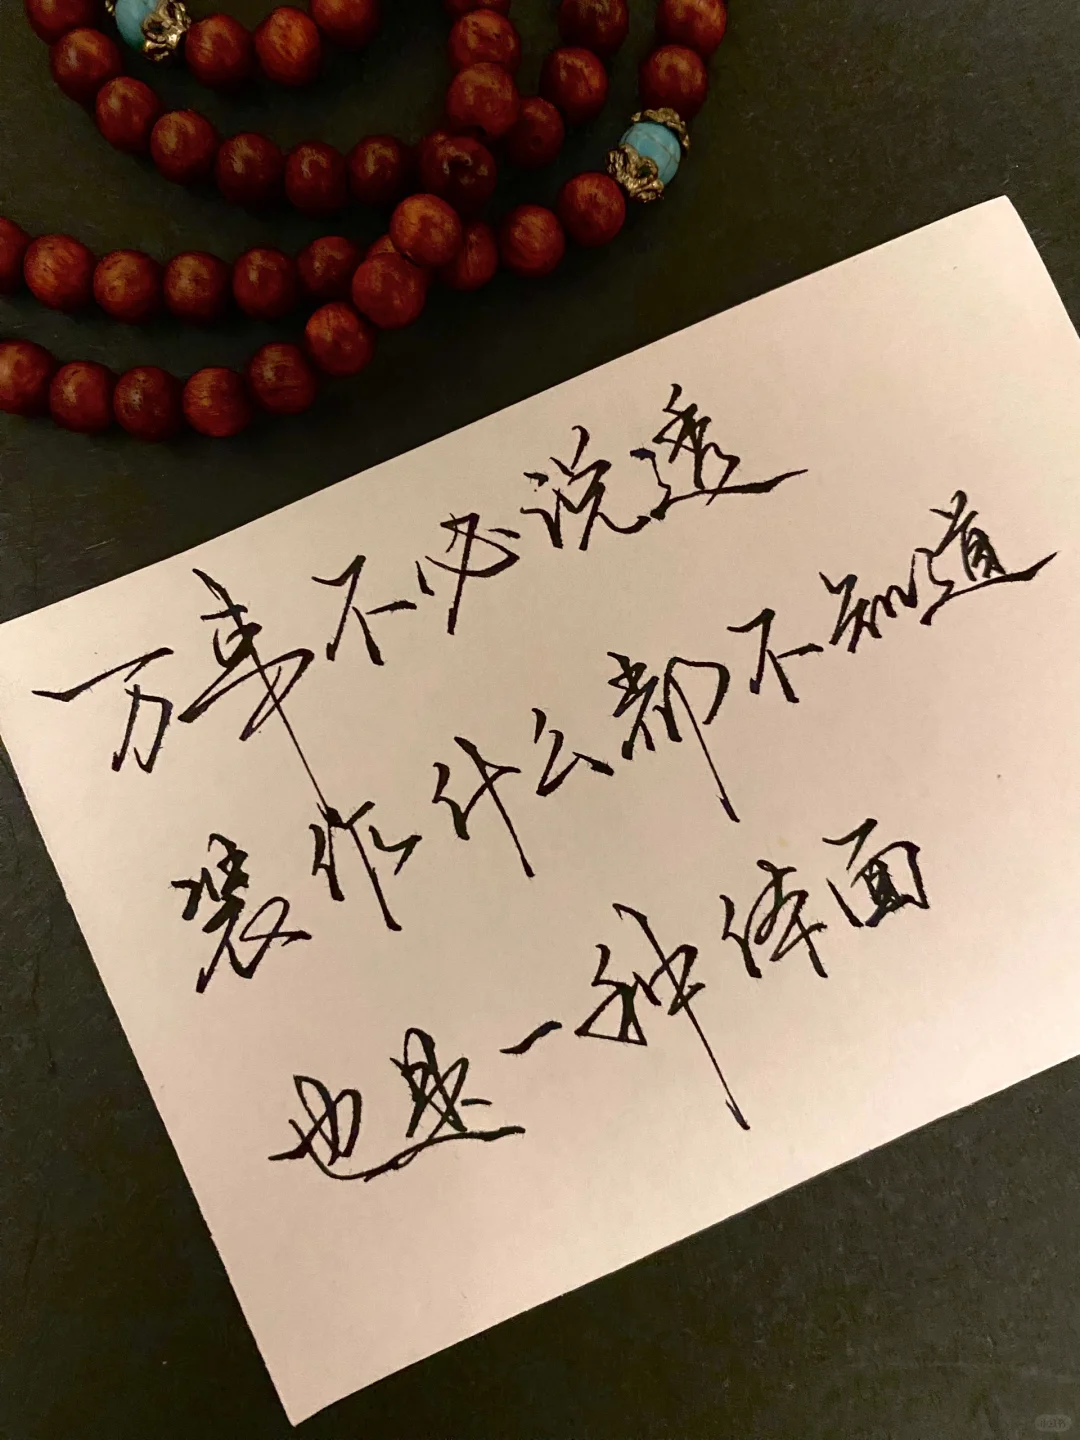 万事不必说透
装作什么都不知道
也是一种体面
小红书